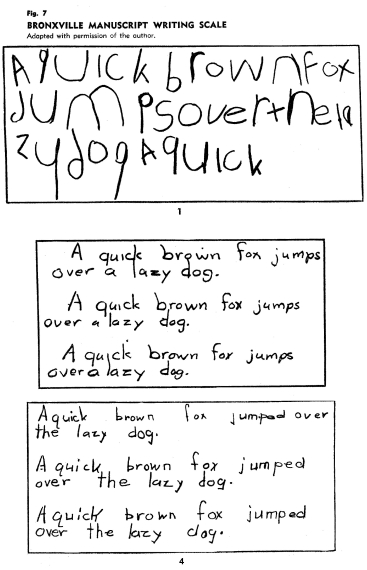 Fig. 7
BRONXVILLE MANUSCRIPT WRITING SCALE
Adapted with permission of the author.
A quick brown fox
jumps over the la
zy dog A quick
1
A quick brown fox jumps
over a lazy dog.
A quick brown fox jumps
over a lazy dog.
A quick brown fox jumps
over a lazy dog.
A quick brown fox jumped over
the lazy dog.
A quick brown fox jumped
over the lazy dog.
A quick brown fox jumped
over the lazy dog.
4